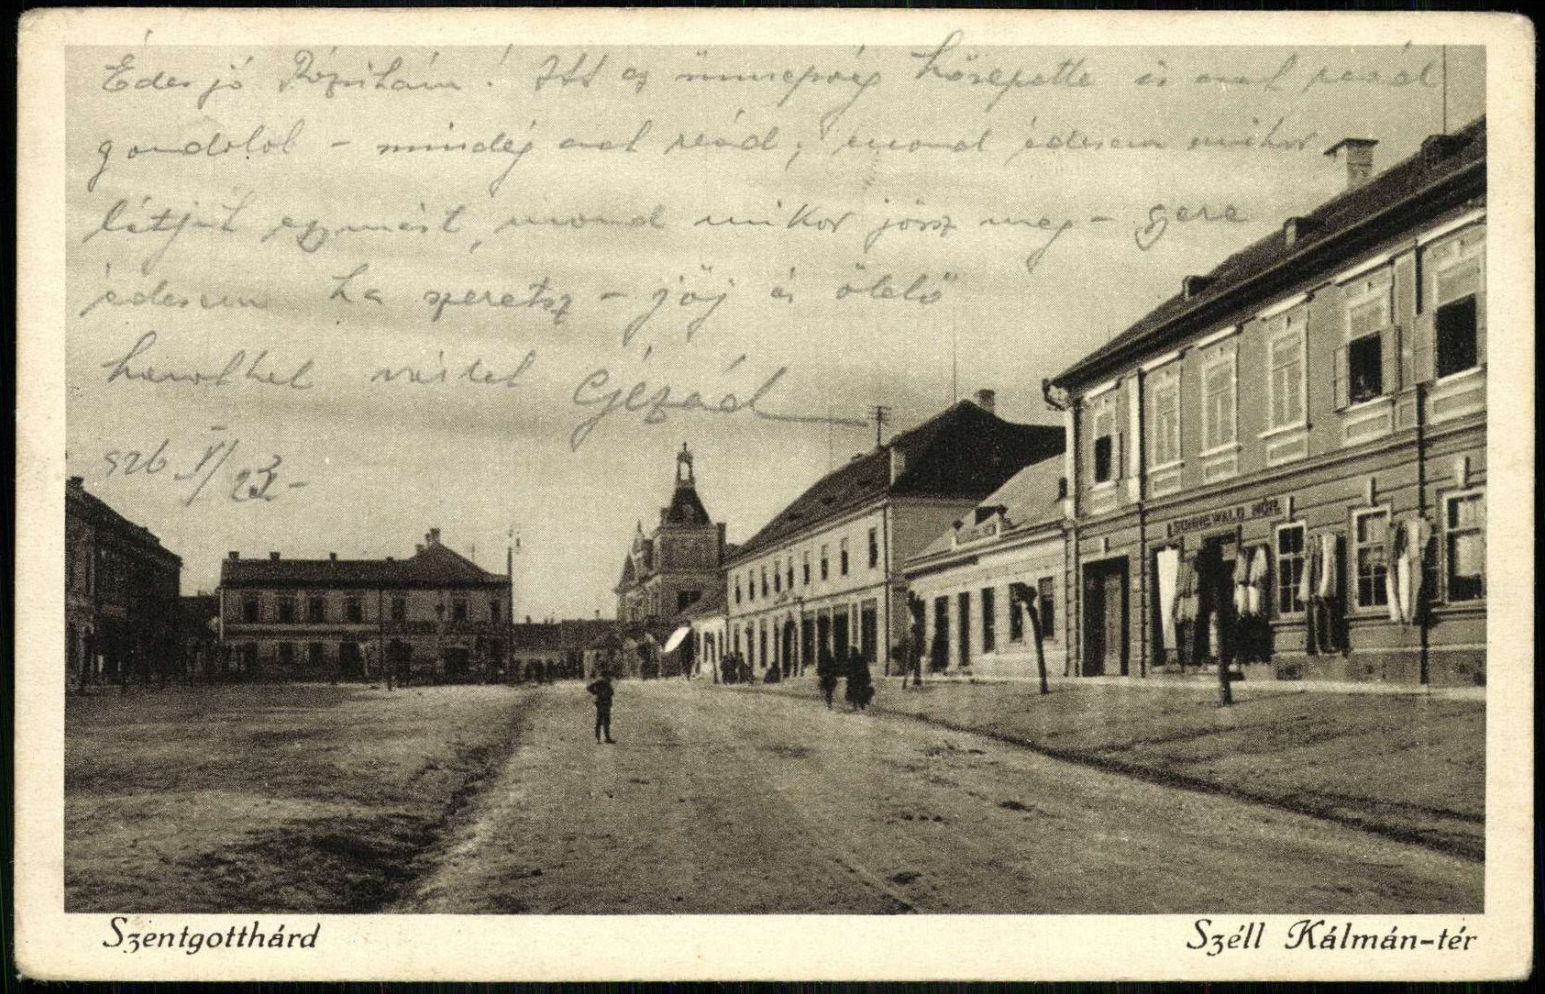 Édes jó Rózsikám! Itt az ünnepség közepette is csak reád
gondolok - mindég csak reád, mond édesem mikor
látjuk egymást, mond mikor jössz meg - gere
édesem ha szeretsz - jöjj és ölelő
karokkal vár
Gézád
926 V/23-
SONNEWALD MÓR
Szentgotthárd
Széll Kálmán-tér